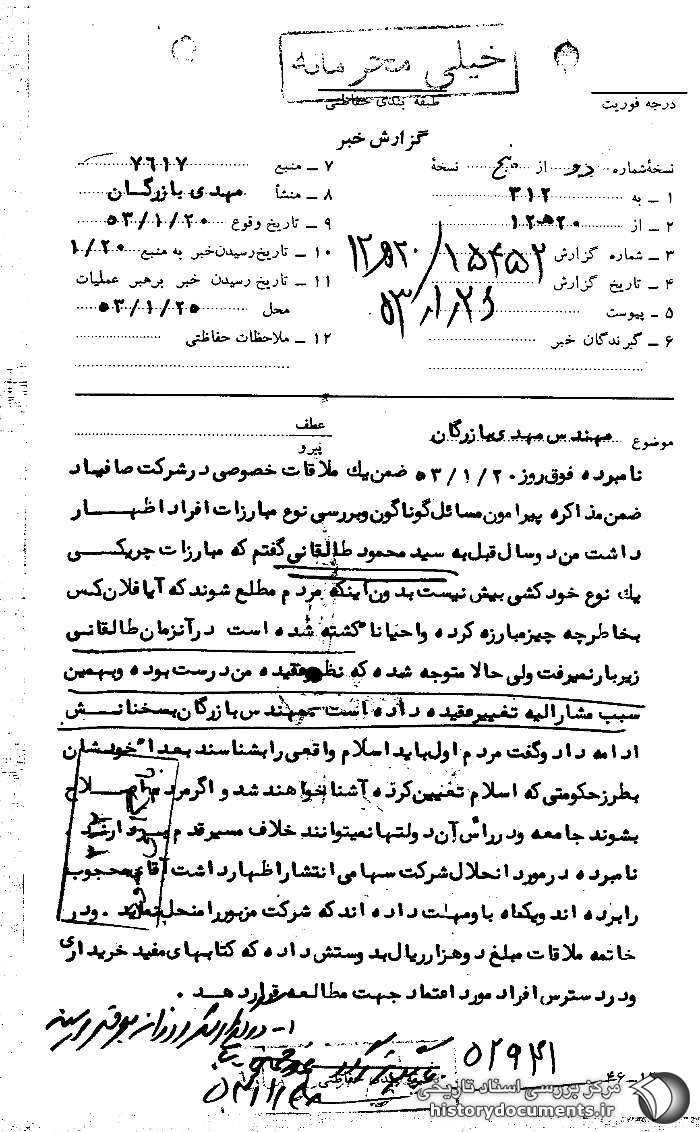 خیلی محرمانه
طبقه بندی حفاظتی
درجه فوریت
گزارش خبر
نسخهٔ شماره دو از پنج نسخهٔ
۱ ـ به ۳۱۲
۲ ـ از ۱۲ﻫ۲۰
۳ ـ شماره گزارش ۱۵۴۵۲/۱۲ﻫ۲۰
۴ ـ تاریخ گزارش ۵۳/۱/۲۶
۵ ـ پیوست
۶ ـ گیرندگان خبر
۷ ـ منبع ۷۶۱۷
۸ ـ منشأ مهدی بازرگان
۹ ـ تاریخ وقوع ۵۳/۱/۲۰
۱۰ ـ تاریخ رسیدن خبر به منبع ۱/۲۰
۱۱ ـ تاریخ رسیدن خبر برهبر عملیات
محل ۵۳/۱/۲۵
۱۲ ـ ملاحظات حفاظتی
موضوع مهندس مهدی بازرگان
عطف
پیرو
نامبرده فوق روز ۵۳/۱/۲۰ ضمن یك ملاقات خصوصی در شرکت صافیاد
ضمن مذاکره پیرامون مسائل گوناگون و بررسی نوع مبارزات افراد اظهار
داشت من دو سال قبل به سید محمود طالقانی گفتم که مبارزات چریکی
یك نوع خودکشی بیش نیست بدون اینکه مردم مطلع شوند که آیا فلان کس
بخاطر چه چیز مبارزه کرده و احیانا" کشته شده است در آنزمان طالقانی
زیر بار نمیرفت ولی حالا متوجه شده که نظر عقیده من درست بوده و بهمین
سبب مشارالیه تغییر عقیده داده است مهندس بازرگان بسخنانش
ادامه داد و گفت مردم اول باید اسلام واقعی را بشناسند بعدا" خودشان
بطرز حکومتی که اسلام تعیین کرده آشنا خواهند شد و اگر مردم اصلاح
بشوند جامعه و در رأس آن دولتها نمیتوانند خلاف مسیر قدم بردارند.
نامبرده در مورد انحلال شرکت سهامی انتشار اظهار داشت آقای محجوب
را برده اند و یکماه باو مهلت داده اند که شرکت مزبور را منحل نماید. و در
خاتمه ملاقات مبلغ دو هزار ریال بدوستش داده که کتابهای مفید خریداری
و در دسترس افراد مورد اعتماد جهت مطالعه قرار دهد.
۵۲۹۴۱
مرکز بررسی اسناد تاریخی
historydocuments.ir